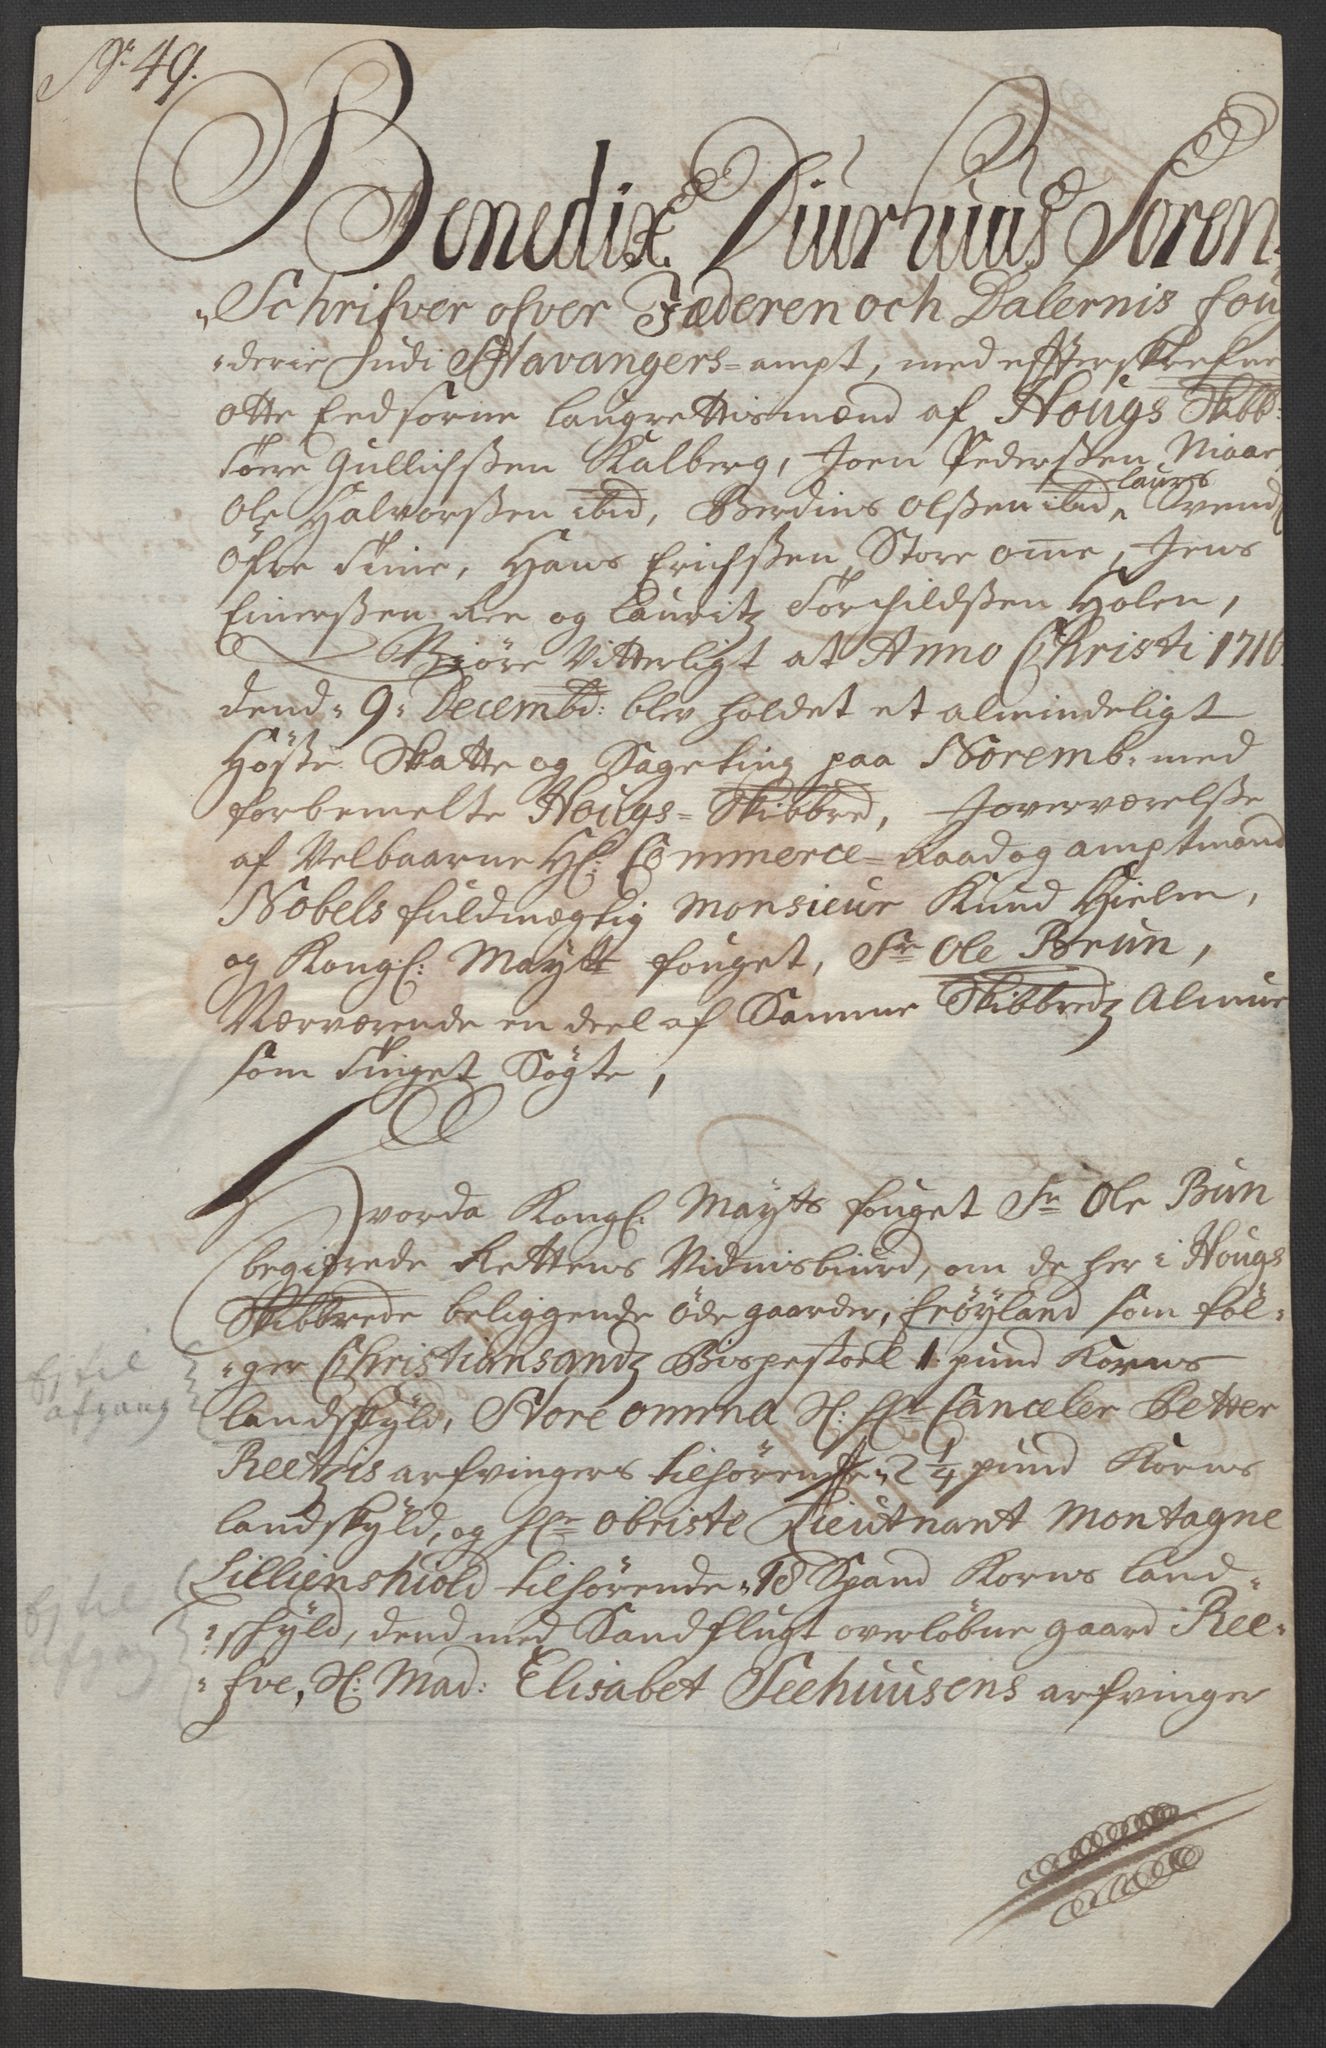 No. 49.
Benedix Diurhuus Soren-
Schrifver ofver Jæderen och Dalernis fou
derie Judi Stavangers-ampt, med efterskrefne
otte Eedsorne laugrettismænd af Hougs Skibb:
Tore Gullichssen Kalberg, Joen Pederssen Niaae,
Ole Halvorssen ibid, Berdius Olssen ibid, laurs Svend
Øfre Time, Hans Erichssen Store ome, Jens
Einerssen Ree og Lauritz Torchildssen Holen,
Giøre Vitterligt at Anno Christi 1716.
dend 9 Decembd: blev holdet et almindeligt
Høste Skatte og Sageting paa Noremb. med
forbemelte Hougs-Skibbred, Joverværelsse
af Velbaarne Hr: Commerce-Raad og amptmand
Nobels fuldmægtig Monsieur Knud Hielm,
og Kongl: Maytt fouget, Sr Ole Brun,
Nærværende en deel af Samme Skibbredz Almue
som Tinget Søgte,
Hvorda Kongl. Maytts fouget Sr Ole Brun
begierede Rettens Vidnisbiurd, om de her i Hougs
Skibbrede beliggende øde gaarder, Frøyland som føl-
ger Christiansandz Bispestoel 1 pund Korns
landskyld, Store omma Sl: Hr Canceler Better
Reetzis arfvingers tilhørende 2 1/4 pund Korns
landskyld, og Hr Obriste Lieutnant Montagne
Lillienshiold tilhørende 18 Spand Korns land-
skyld, dend med Sandflugt overløbne gaard Ree-
fve, Sl: Mad: Elisabet Seehuusens arfvinger
Ej til
afgang
Ej til
afgang